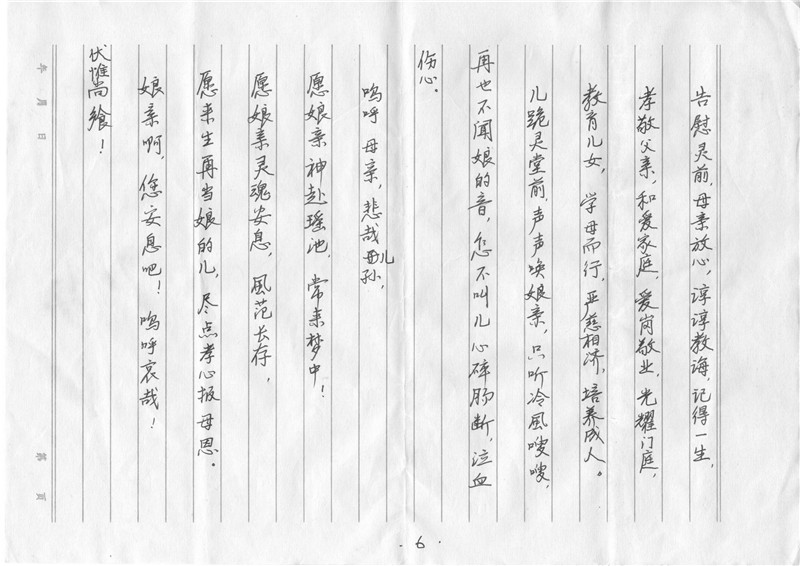 告慰灵前，母亲放心，谆谆教诲，记得一生，
孝敬父亲，和爱家庭，爱岗敬业，光耀门庭，
教育儿女，学母而行，严慈相济，培养成人。
儿跪灵堂前，声声唤娘亲，只听冷風嗖嗖，
再也不闻娘的音，怎不叫儿心碎肠断，泣血
伤心。
呜呼母亲，悲哉儿孙，
愿娘亲神赴瑶池，常来梦中！
愿娘亲灵魂安息，風范长存，
愿来生再当娘的儿，尽点孝心报母恩。
娘亲啊，您安息吧！呜呼哀哉！
伏惟尚飨！
年月日
第 页
·6·